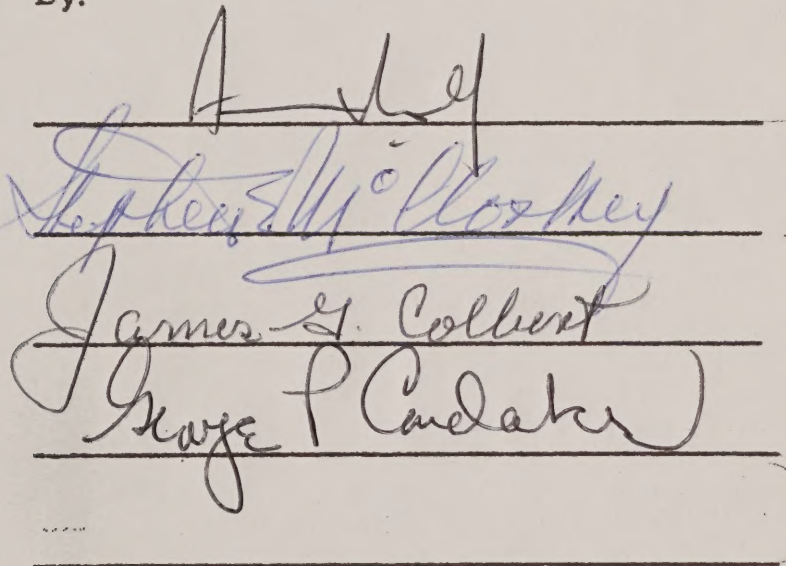 By:
Stephen E. McCloskey
James G. Colbert
George P Condakes